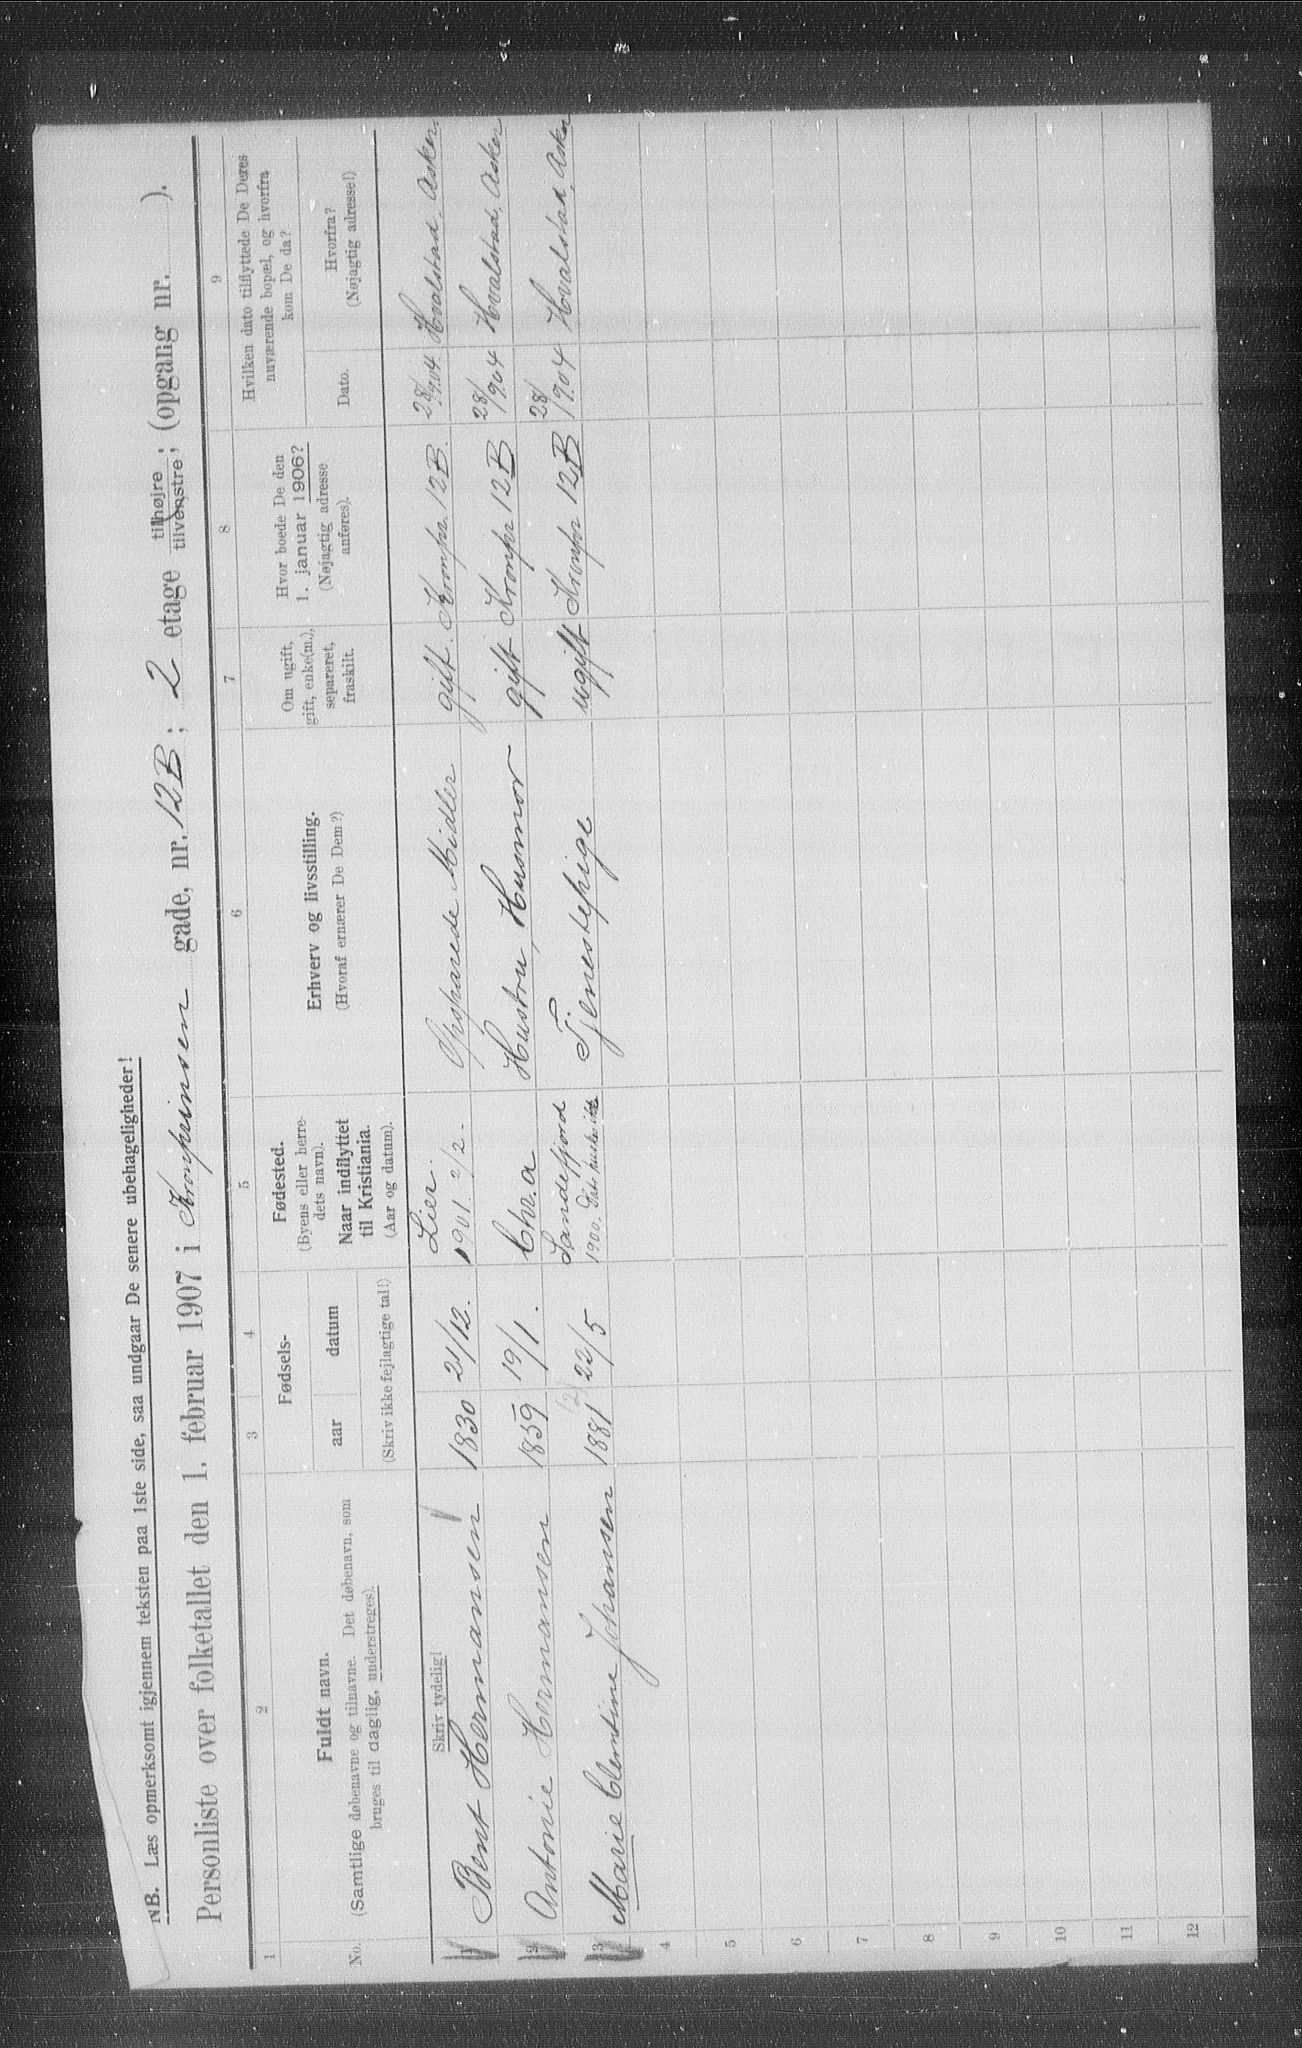 NB. Læs opmerksomt igjennem teksten paa 1ste side, saa undgaar De senere ubehageligheder!
Personliste over folketallet den 1. februar 1907 i Kronprinsen gade, nr. 12B; 2 etage tilhøjre; tilvenstre; (opgang nr. ).
1 2 3 4 5 6 7 8 9
No.
Fuldt navn.
(Samtlige døbenavne og tilnavne. Det døbenavn, som
bruges til daglig, understreges).
Fødsels-
aar datum
(Skriv ikke fejlagtige tal!)
Fødested.
(Byens eller herre-
dets navn).
Naar indflyttet
til Kristiania.
(Aar og datum).
Erhverv og livsstilling.
(Hvoraf ernærer De Dem?)
Om ugift,
gift, enke(m.),
separeret,
fraskilt.
Hvor boede De den
1. januar 1906?
(Nøjagtig adresse
anføres).
Hvilken dato tilflyttede De Deres
nuværende bopæl, og hvorfra
kom De da?
Dato.
Hvorfra?
(Nøjagtig adresse!)
Skriv tydelig!
1 Bent Hermansen 1830 21/12. Lier. 1901. 2/2. Opsparede Midler gift. Kronpr. 12B. 28/1904. Hvalstad, Asker.
2 Antonie Hermansen 1859 19/1. Chr.a Hustru, Husmor gift Kronpr 12B 28/1904 Hvalstad, Asker
3 Marie Clemtine Johansen 1881 22/5 Sandefjord 1900. Dato huskes ikke Tjenestepige ugift Kronpr 12B 28/1904 Hvalstad, Asker
4
5
6
7
8
9
10
11
12